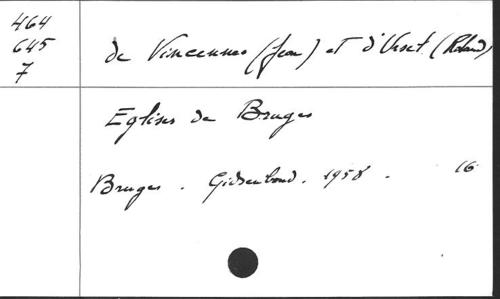 464
645
7
de Vincennes (Jean) et d'Ursel (Roland)
Eglises de Bruges
Bruges. Gidsenbond. 1958. 16